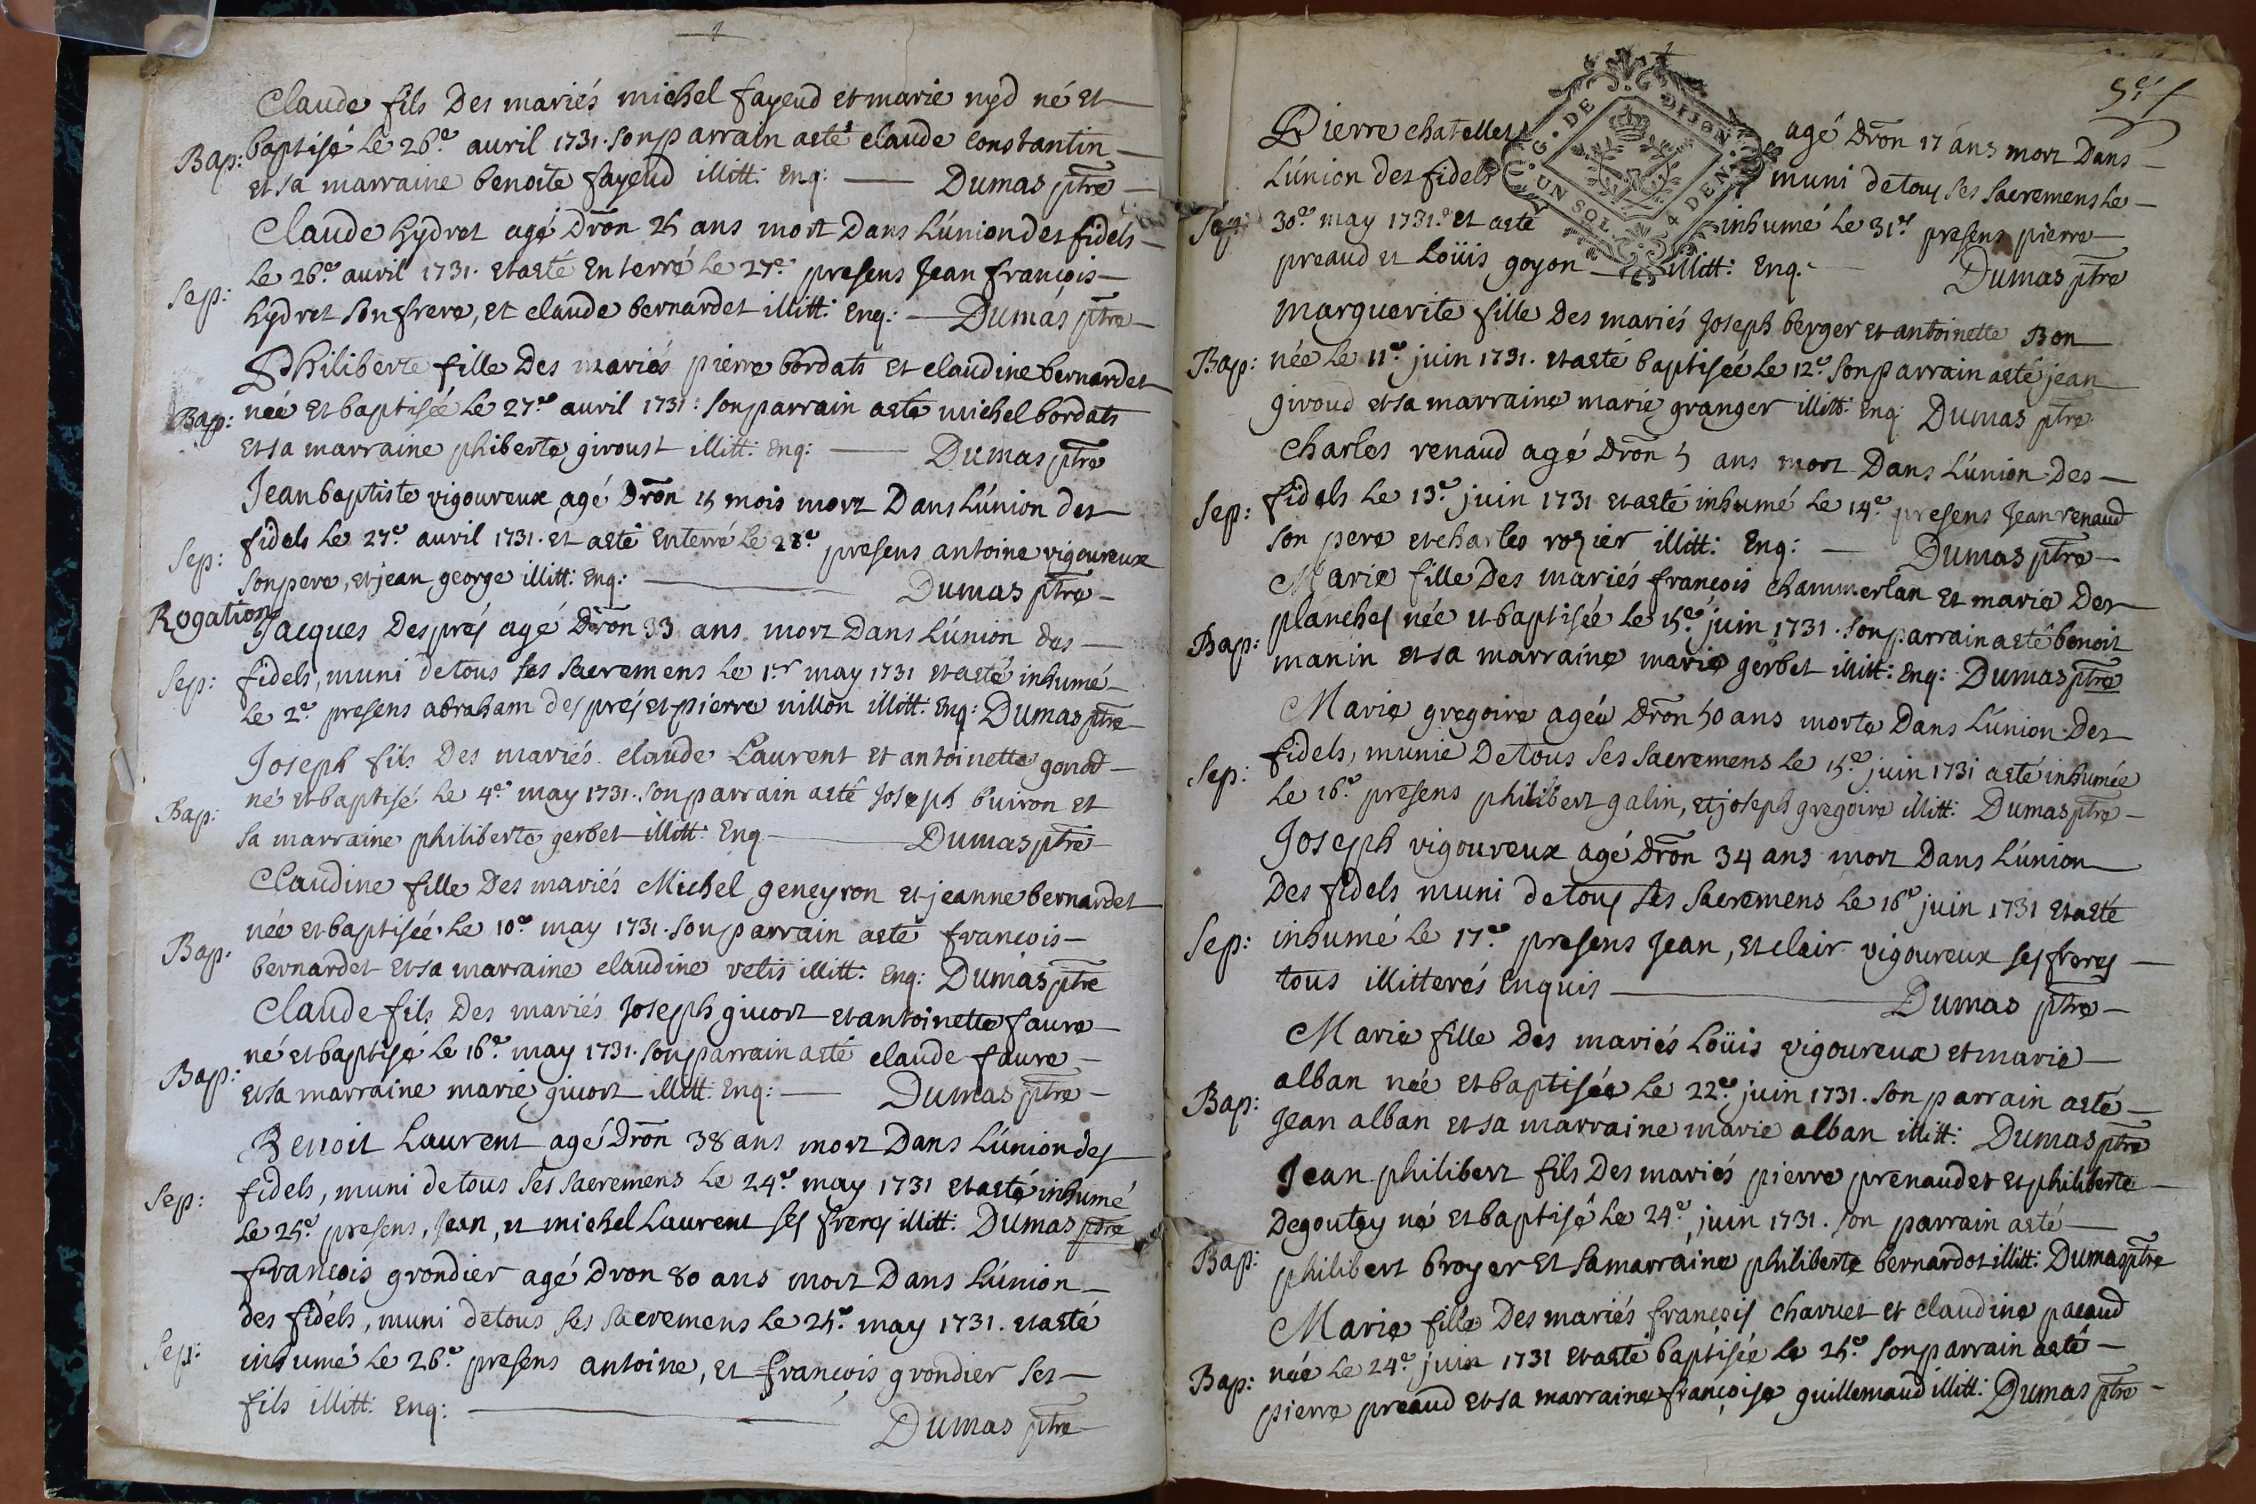 Claude fils Des mariés michel fayeud et marie nyd né et
Bap: baptisé Le 26.e avril 1731. son parrain a esté claude constantin
et sa marraine benoite fayeud illitt: Enq: Dumas ptre
Claude hydret agé Dron 25 ans mort Dans L'union des fidels
Sep: Le 26.e avril 1731. et a esté Enterré Le 27.e presens Jean françois
hydret son frere, et claude bernardet illitt: Enq: Dumas ptre
Philiberte fille Des mariés pierre bordats et claudine bernardet
Bap: née et baptisée Le 27.e avril 1731. son parrain a esté michel bordats
et sa marraine phiberte giroust illitt: Enq: Dumas ptre
Jean baptiste vigoureux agé Dron 15 mois mort Dans L'union des
Sep: fidels Le 27.e avril 1731. et a esté Enterré Le 28.e presens antoine vigoureux
son pere, et jean george illitt: Enq: Dumas ptre
Rogations
Jacques Després agé Dron 33 ans mort Dans L'union des
Sep: fidels, muni de tous ses sacremens Le 1.r may 1731 et a esté inhumé
Le 2.e presens abraham des prés et pierre nillon illitt: Enq: Dumas ptre
Joseph fils Des mariés claude Laurent et antoinette gonod
Bap: né et baptisé Le 4.e may 1731. son parrain a esté Joseph buiron et
sa marraine philiberte gerbet illitt: Enq Dumas ptre
Claudine fille Des mariés Michel geneyron et jeanne bernardet
Bap. née et baptisée Le 10.e may 1731. son parrain a esté françois
bernardet et sa marraine claudine velis illitt: Enq: Dumas ptre
Claude fils Des mariés Joseph givort et antoinette faure
Bap: né et baptisé Le 16.e may 1731. son parrain a esté claude faure
et sa marraine marie givort illitt: Enq: Dumas ptre
Benoit Laurent agé Dron 38 ans mort Dans L'union des
Sep: fidels, muni de tous ses sacremens Le 24.e may 1731 et a esté inhumé
Le 25.e presens, Jean, et michel Laurent ses freres illitt: Dumas ptre
françois grondier agé Dron 80 ans mort Dans L'union
des fidels, muni de tous ses sacremens Le 25.e may 1731. et a esté
Sep: inhumé Le 26.e presens antoine, et françois grondier ses
fils illitt: Enq: Dumas ptre
5.e f
G. DE DIJON.
UN SOL. 4 DEN.
Pierre chatellet agé Dron 17 ans mort Dans
L'union des fidels muni de tous ses sacremens Le
Sep: 30.e may 1731. et a esté inhumé Le 31.e presens pierre
preaud et Loüis goyon illitt: Enq: Dumas ptre
Marguerite fille Des mariés Joseph berger et antoinette Bon
Bap: née Le 11.e juin 1731. et a esté baptisée Le 12.e son parrain a esté jean
giroud et sa marraine marie granger illitt: Enq: Dumas ptre
Charles renaud agé Dron 5 ans mort Dans L'union Des
Sep: fidels Le 13.e juin 1731 et a esté inhumé Le 14.e presens Jean renaud
son pere et charles rozier illitt: Enq: Dumas ptre
Marie fille Des mariés françois chammerlan et marie Des
planches née et baptisée Le 15.e juin 1731. son parrain a esté benoit
Bap: manin et sa marraine marie gerbet illitt: Enq: Dumas ptre
Marie gregoire agée Dron 50 ans morte Dans L'union Des
Sep: fidels, munie De tous ses sacremens Le 15.e juin 1731 a esté inhumée
Le 16.e presens philibert galin, et joseph gregoire illitt: Dumas ptre
Joseph vigoureux agé Dron 34 ans mort Dans L'union
Des fidels muni de tous ses sacremens Le 16.e juin 1731 et a esté
Sep: inhumé Le 17.e presens Jean, et clair vigoureux ses freres
tous illitterés Enquis Dumas ptre
Marie fille Des mariés Loüis vigoureux et marie
Bap: alban née et baptisée Le 22.e juin 1731. son parrain a esté
Jean alban et sa marraine marie alban illitt: Dumas ptre
Jean philibert fils Des mariés pierre prenaudet et philiberte
Degoutey né et baptisé Le 24.e juin 1731. son parrain a esté
Bap: philibert broyer et sa marraine philiberte bernardot illitt: Dumas ptre
Marie fille Des mariés françois charvet et claudine pacaud
Bap: née Le 24.e juin 1731 et a esté baptisée Le 25.e son parrain a esté
pierre preaud et sa marraine françoise guillemaud illitt: Dumas ptre